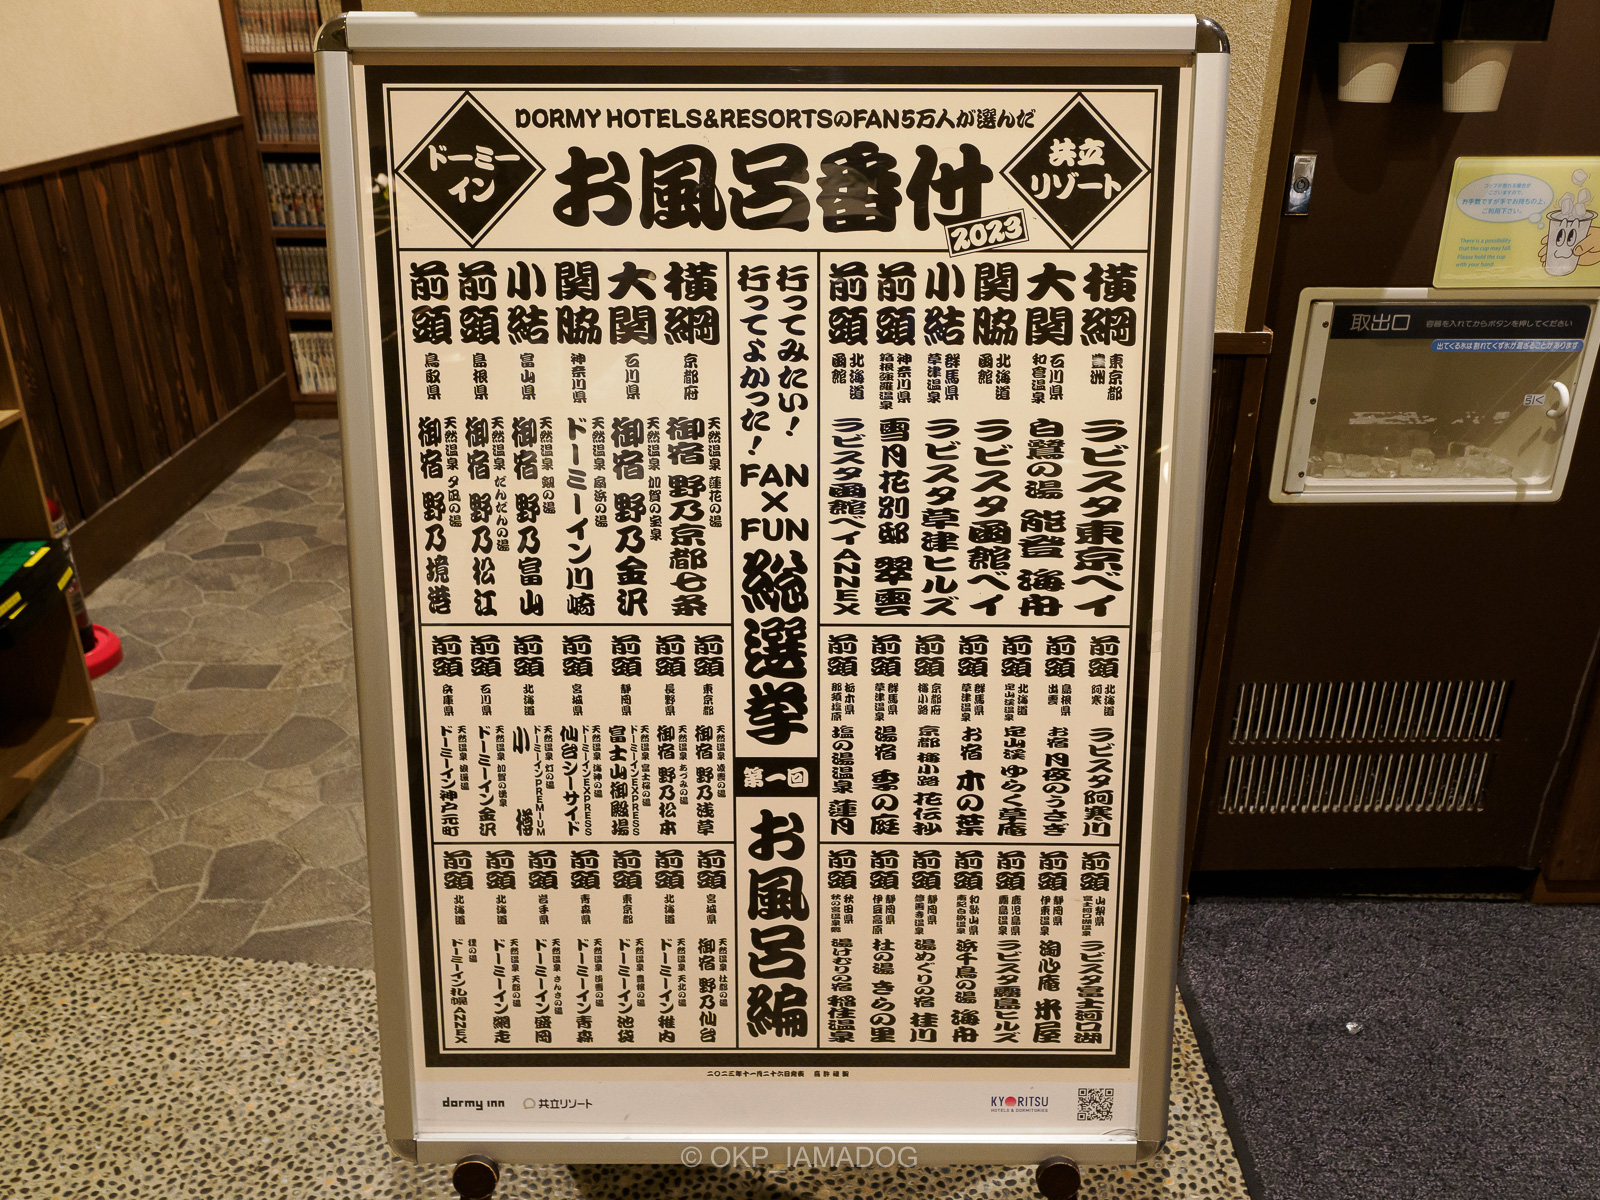 DORMY HOTELS&RESORTSのFAN5万人が選んだ
お風呂番付
2023
ドーミー
イン
共立
リゾート
横綱 東京都 豊洲 ラビスタ東京ベイ
大関 石川県 和倉温泉 白鷺の湯 能登 海舟
関脇 北海道 函館 ラビスタ函館ベイ
小結 群馬県 草津温泉 ラビスタ草津ヒルズ
前頭 神奈川県 箱根強羅温泉 雪月花別邸 翠雲
前頭 北海道 函館 ラビスタ函館ベイANNEX
前頭 北海道 阿寒 ラビスタ阿寒川
前頭 島根県 出雲 お宿月夜のうさぎ
前頭 北海道 定山渓温泉 定山渓 ゆらく草庵
前頭 群馬県 草津温泉 お宿 木の葉
前頭 京都府 梅小路 京都 梅小路 花伝抄
前頭 群馬県 草津温泉 湯宿 季の庭
前頭 栃木県 那須塩原 塩の湯温泉 蓮月
前頭 山梨県 富士河口湖温泉 ラビスタ富士河口湖
前頭 静岡県 伊東温泉 淘心庵 米屋
前頭 鹿児島県 霧島温泉 ラビスタ霧島ヒルズ
前頭 和歌山県 南紀白浜温泉 浜千鳥の湯 海舟
前頭 静岡県 修善寺温泉 湯めぐりの宿 桂川
前頭 静岡県 伊豆高原 杜の湯 きらの里
前頭 秋田県 秋の宮温泉郷 湯けむりの宿 稲住温泉
行ってみたい！
行ってよかった！
FAN
×
FUN
総選挙
第一回
お風呂編
横綱 京都府 天然温泉 蓮花の湯 御宿 野乃京都七条
大関 石川県 天然温泉 加賀の宝泉 御宿 野乃金沢
関脇 神奈川県 天然温泉 扇浜の湯 ドーミーイン川崎
小結 富山県 天然温泉 剱の湯 御宿 野乃富山
前頭 島根県 天然温泉 だんだんの湯 御宿 野乃松江
前頭 鳥取県 天然温泉 夕凪の湯 御宿 野乃境港
前頭 東京都 天然温泉 凌雲の湯 御宿 野乃浅草
前頭 長野県 天然温泉 あづみの湯 御宿 野乃松本
前頭 静岡県 天然温泉 富士桜の湯 ドーミーインEXPRESS 富士山御殿場
前頭 宮城県 天然温泉 海神の湯 ドーミーインEXPRESS 仙台シーサイド
前頭 北海道 天然温泉 灯の湯 ドーミーインPREMIUM 小樽
前頭 石川県 天然温泉 加賀の湧泉 ドーミーイン金沢
前頭 兵庫県 天然温泉 浪漫湯 ドーミーイン神戸元町
前頭 宮城県 天然温泉 杜都の湯 御宿 野乃仙台
前頭 北海道 天然温泉 天北の湯 ドーミーイン稚内
前頭 東京都 天然温泉 豊穣の湯 ドーミーイン池袋
前頭 青森県 天然温泉 ドーミーイン青森
前頭 岩手県 天然温泉 さんさの湯 ドーミーイン盛岡
前頭 北海道 天然温泉 天都の湯 ドーミーイン網走
前頭 北海道 ドーミーイン札幌ANNEX
二〇二三年十一月二十六日発表
dormy inn
共立リゾート
KYORITSU
HOTELS & DORMITORIES
コップが倒れる場合が
ございますので、
お手数ですが手でお持ちの上、
ご利用下さい。
There is a possibility
that the cup may fall.
Please hold the cup
with your hand.
取出口 容器を入れてからボタンを押してください
出てくる氷は割れてくず氷が混ざることがあります
引く
© OKP_IAMADOG